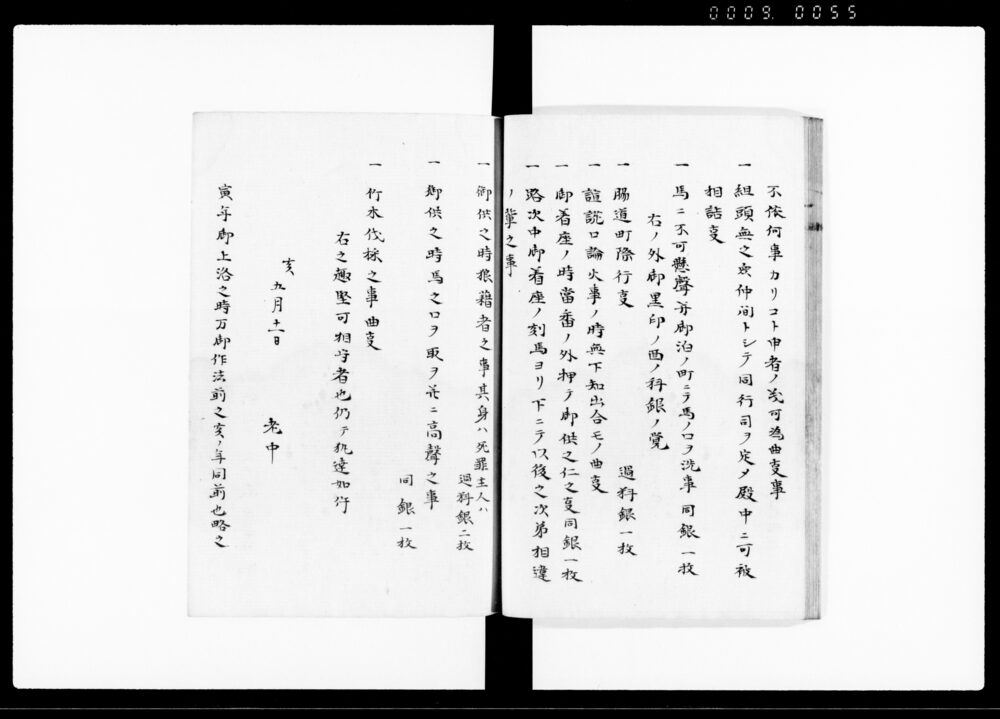 0009. 0055
不依何事カリコト申者ノ儀可為曲事事
一 組頭無之衆仲間トシテ同行司ヲ定メ殿中ニ可被
相詰事
一 馬ニ不可懸聲并御泊ノ町ニテ馬ノ口ヲ洗事同銀一枚
右ノ外御黒印ノ面ノ科銀ノ覚
一 脇道町際行事 過料銀一枚
一 諠譁口論火事ノ時無下知出合モノ曲事
一 御着座ノ時當番ノ外押テ御供之仁之事同銀一枚
一 路次中御着座ノ刻馬ヨリ下ニテ以後之次第相違
ノ輩之事
一 御供之時狼藉者之事其身ハ死罪主人ハ
過料銀二枚
一 御供之時馬之口ヲ取ヲ并ニ高聲之事
同銀一枚
一 竹木伐採之事曲事
右之趣堅可相守者也仍テ執達如件
亥九月十一日
老中
寅年御上洛之時万御作法前之亥ノ年同前也略之